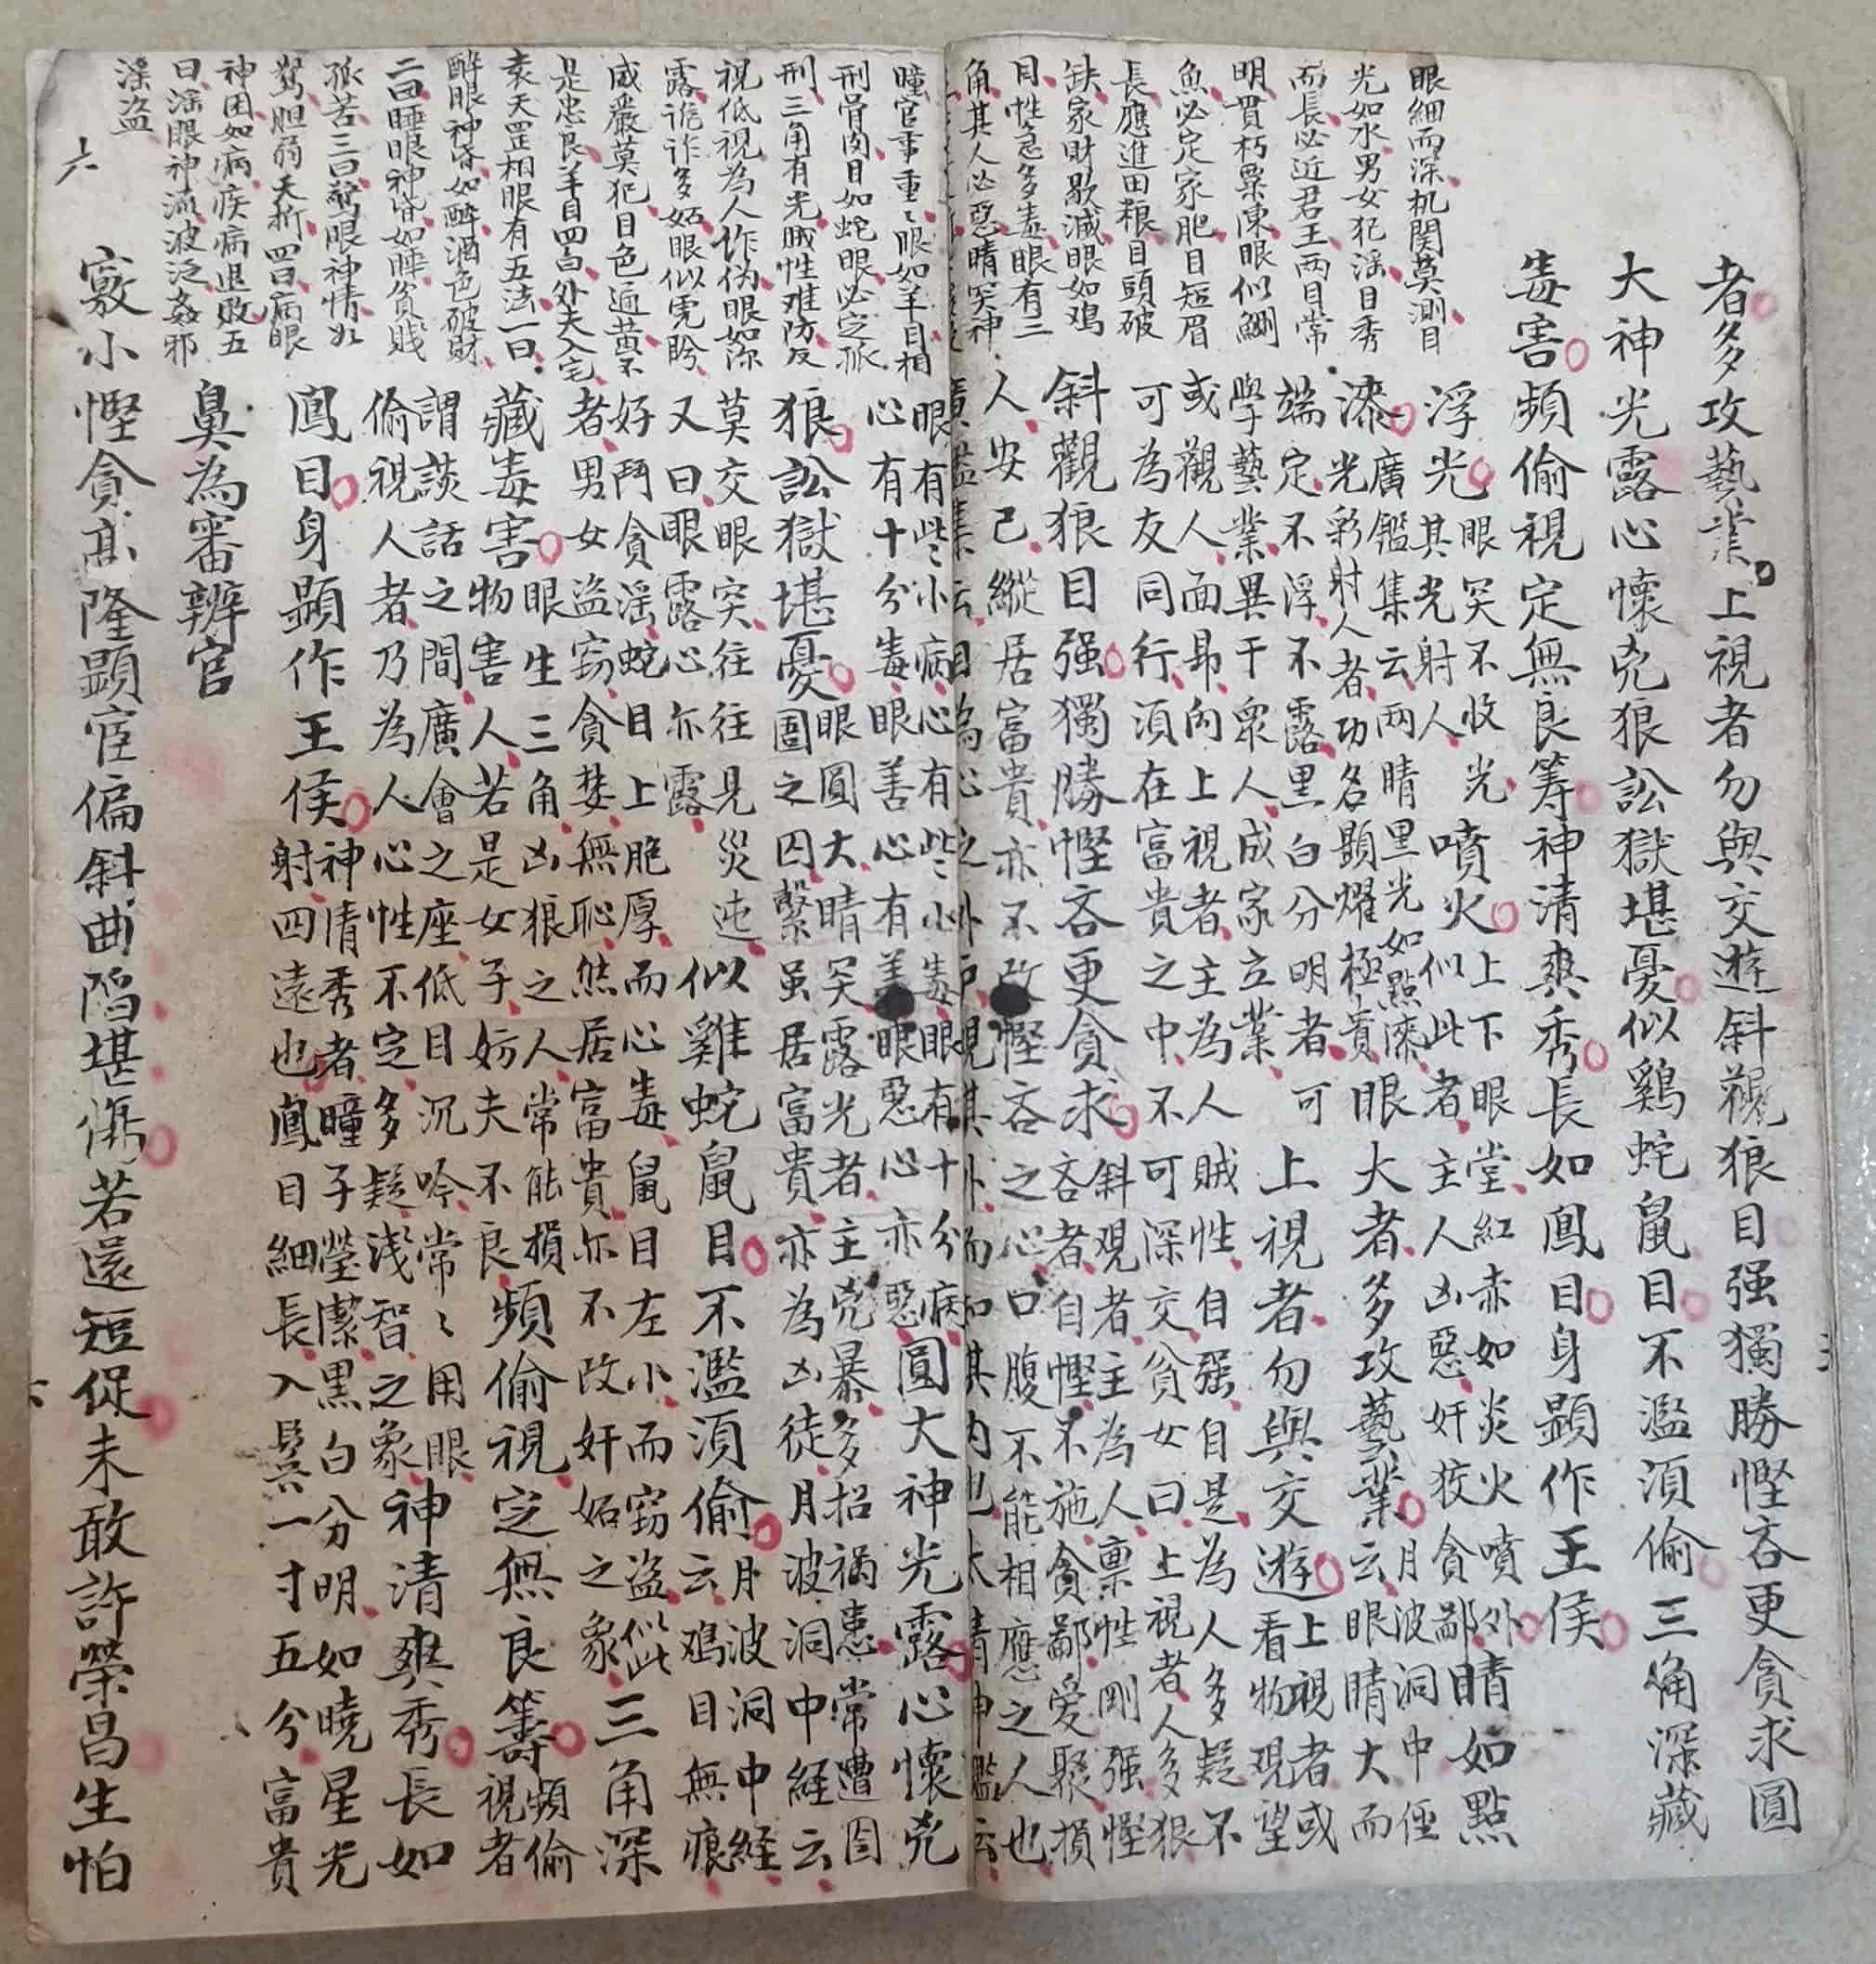 眼細而深机関莫測目
光如水男女犯淫目秀
而長必近君王两目常
明貫朽粟陳眼似鯽
魚必定家肥目短眉
長應進田粮目頭破
缺家財歇滅眼如鷄
目性急多毒眼有三
角其人必惡睛突神
者多攻藝業上視者勿與交遊斜觀狼目强獨勝慳吝更貪求圓
大神光露心懷兇狼訟獄堪憂似鷄蛇鼠目不濫湏偷三角深藏
毒害頻偷視定無良筭神清爽秀長如鳳目身顕作王侯
浮光眼突不收光其光射人噴火上下眼堂紅赤如炎火噴外似此者主人凶惡奸狡貪鄙睛如點
漆廣鑑集云两睛黒光如點漆光彩射人者功名顕耀極貴眼大者多攻藝業月波洞中経云眼睛大而
端定不浮不露黒白分明者可學藝業異于衆人成家立業上視者勿與交遊上視者或看物覌望
或觀人面昻向上視者主為人賊性自强自是為人多疑不可為友同行湏在富貴之中不可深交貧女曰上視者人多狠
斜觀狼目强獨勝慳吝更貪求斜覌者主為人禀性剛强慳吝者自慳不施貪鄙愛聚損
人安己縱居富貴亦不改慳吝之心口腹不能相應之人也
瞳官事重〻眼如羊目相
刑骨肉目如蛇眼必定孤
刑三角有光賊性难防反
視低視為人作伪眼如深
露詭诈多妬眼似虎盻
威嚴莫犯目色通黄不
是忠良羊目四白外夫入宅
袁天罡相眼有五法一曰
醉眼神昏如醉酒色破財
二曰睡眼神昏如睡貧賎
孤苦三曰驚眼神情如
驚胆弱夭折四曰病眼
神困如病疾病退敗五
曰淫眼神流波泛姦邪
淫盗
眼有些小病心有些小毒眼有十分病
心有十分毒眼善心有善眼惡心亦惡圓大神光露心懷兇
狼訟獄堪憂眼圓大睛突露光者主兇暴多招禍患常遭囹圄之囚繫虽居富貴亦為凶徒月波洞中経云
莫交眼突往往見災迍
又曰眼露心亦露似雞蛇鼠目不濫湏偷月波洞中経云鷄目無痕
好鬥貪淫蛇目上胞厚而心毒鼠目左小而窃盗似此者男女盗窃貪婪無恥然居富貴亦不改奸妬之象三角深
藏毒害眼生三角凶狼之人常能損物害人若是女子妨夫不良頻偷視定無良籌頻偷視者
謂談話之間廣會之座低目沉吟常〻用眼偷視人者乃為人心性不定多疑淺智之象神清爽秀長如
鳳目身顕作王侯神情秀者瞳子瑩潔黒白分明如曉星光射四遠也鳳目細長入鬓一寸五分富貴
鼻為審辨官
竅小慳貪髙隆顕宦偏斜曲陷堪傷若還短促未敢許榮昌生怕
六